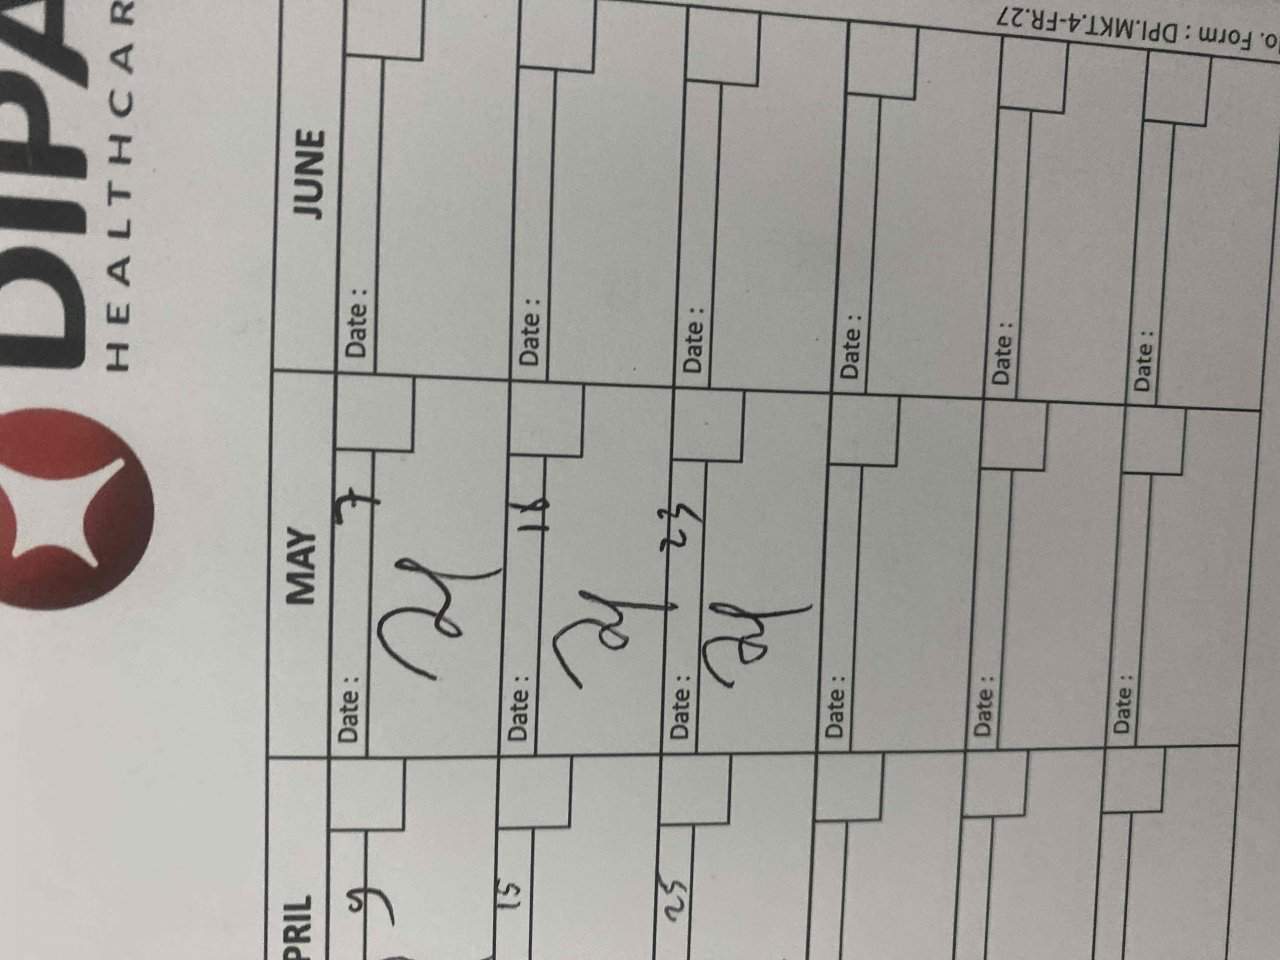 DIPA
HEALTHCAR
PRIL MAY JUNE
9 Date : 7 Date :
15 Date : Date :
25 Date : 23 Date :
Date : Date :
Date : Date :
Date : Date :
o. Form : DPI.MKT.4-FR.27